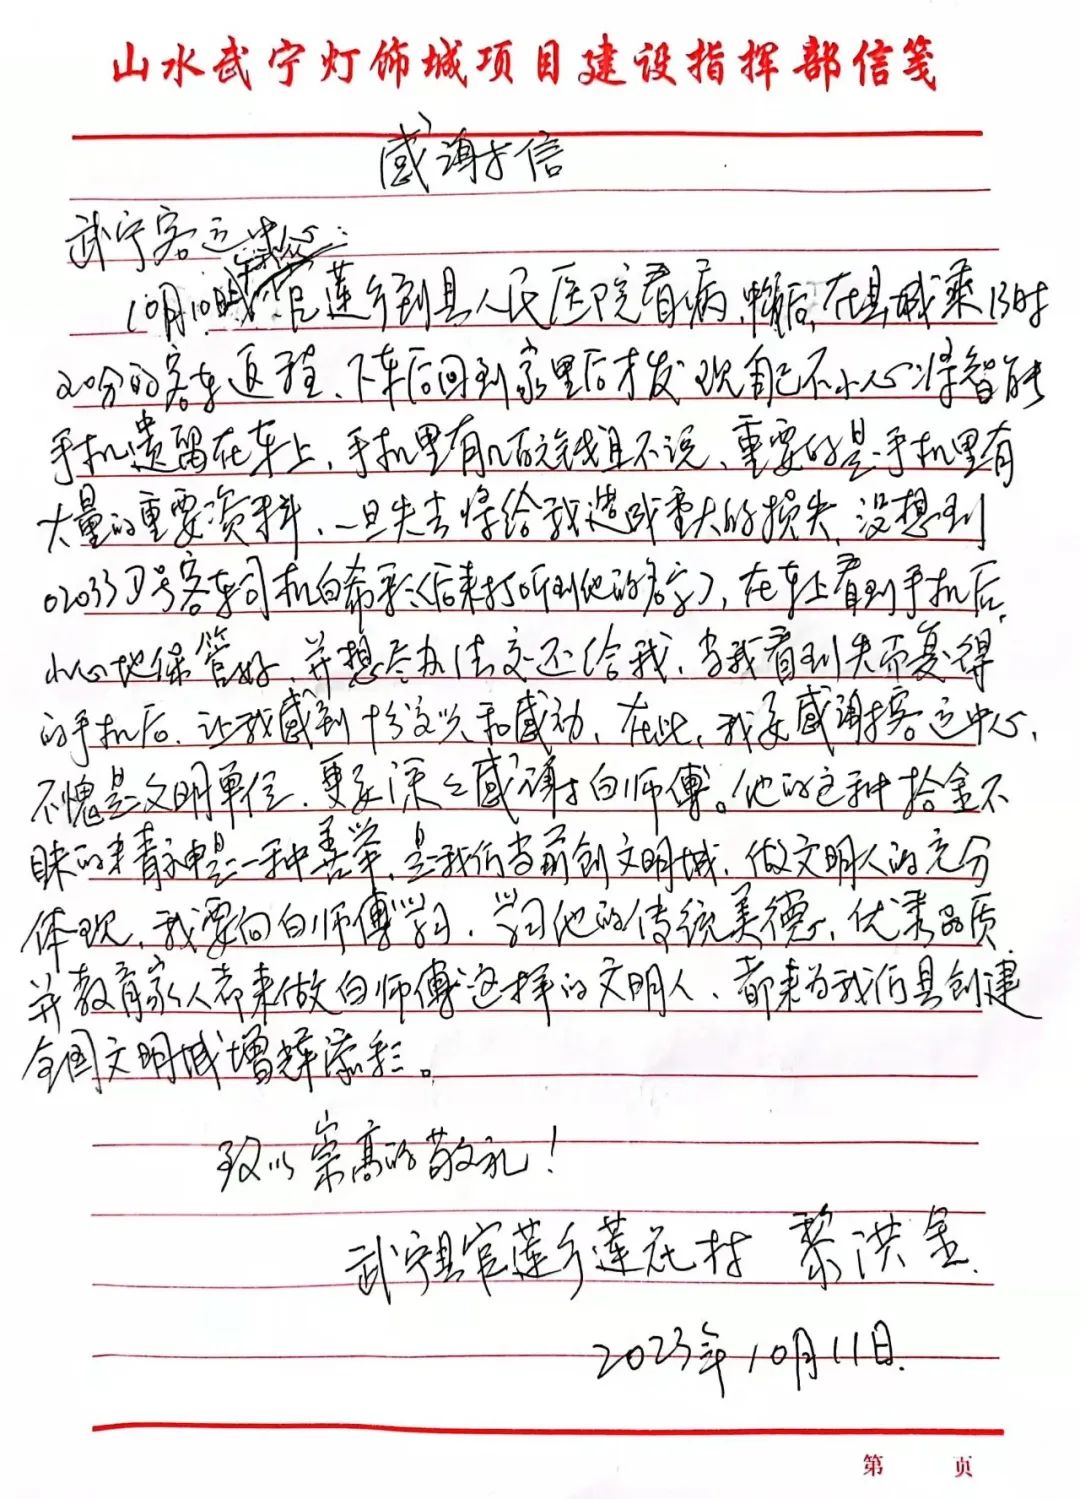 山水武宁灯饰城项目建设指挥部信笺
感谢信
武宁客运中心:
10月10日我从官莲乡到县人民医院看病,后,在县城乘13时
20分的客车返程、下车后回到家里后才发现自己不小心将智能
手机遗留在车上,手机里有几百元钱且不说、重要的是手机里有
大量的重要资料、一旦失去将给我造成重大的损失,没想到
02033D号客车司机白希彩(后来打听到他的名字),在车上看到手机后,
小心地保管好、并想尽办法交还给我、当我看到失而复得
的手机后、让我感到十分高兴和感动、在此、我要感谢客运中心、
不愧是文明单位、更要深深感谢白师傅。他的这种拾金不
昧的精神是一种善举、是我们当前创文明城、做文明人的充分
体现、我要向白师傅学习、学习他的传统美德、优秀品质
并教育家人都来做白师傅这样的文明人、都来为我们县创建
全国文明城增辉添彩。
致以崇高的敬礼!
武宁县官莲乡莲花村 黎洪金.
2023年10月11日.
第 页